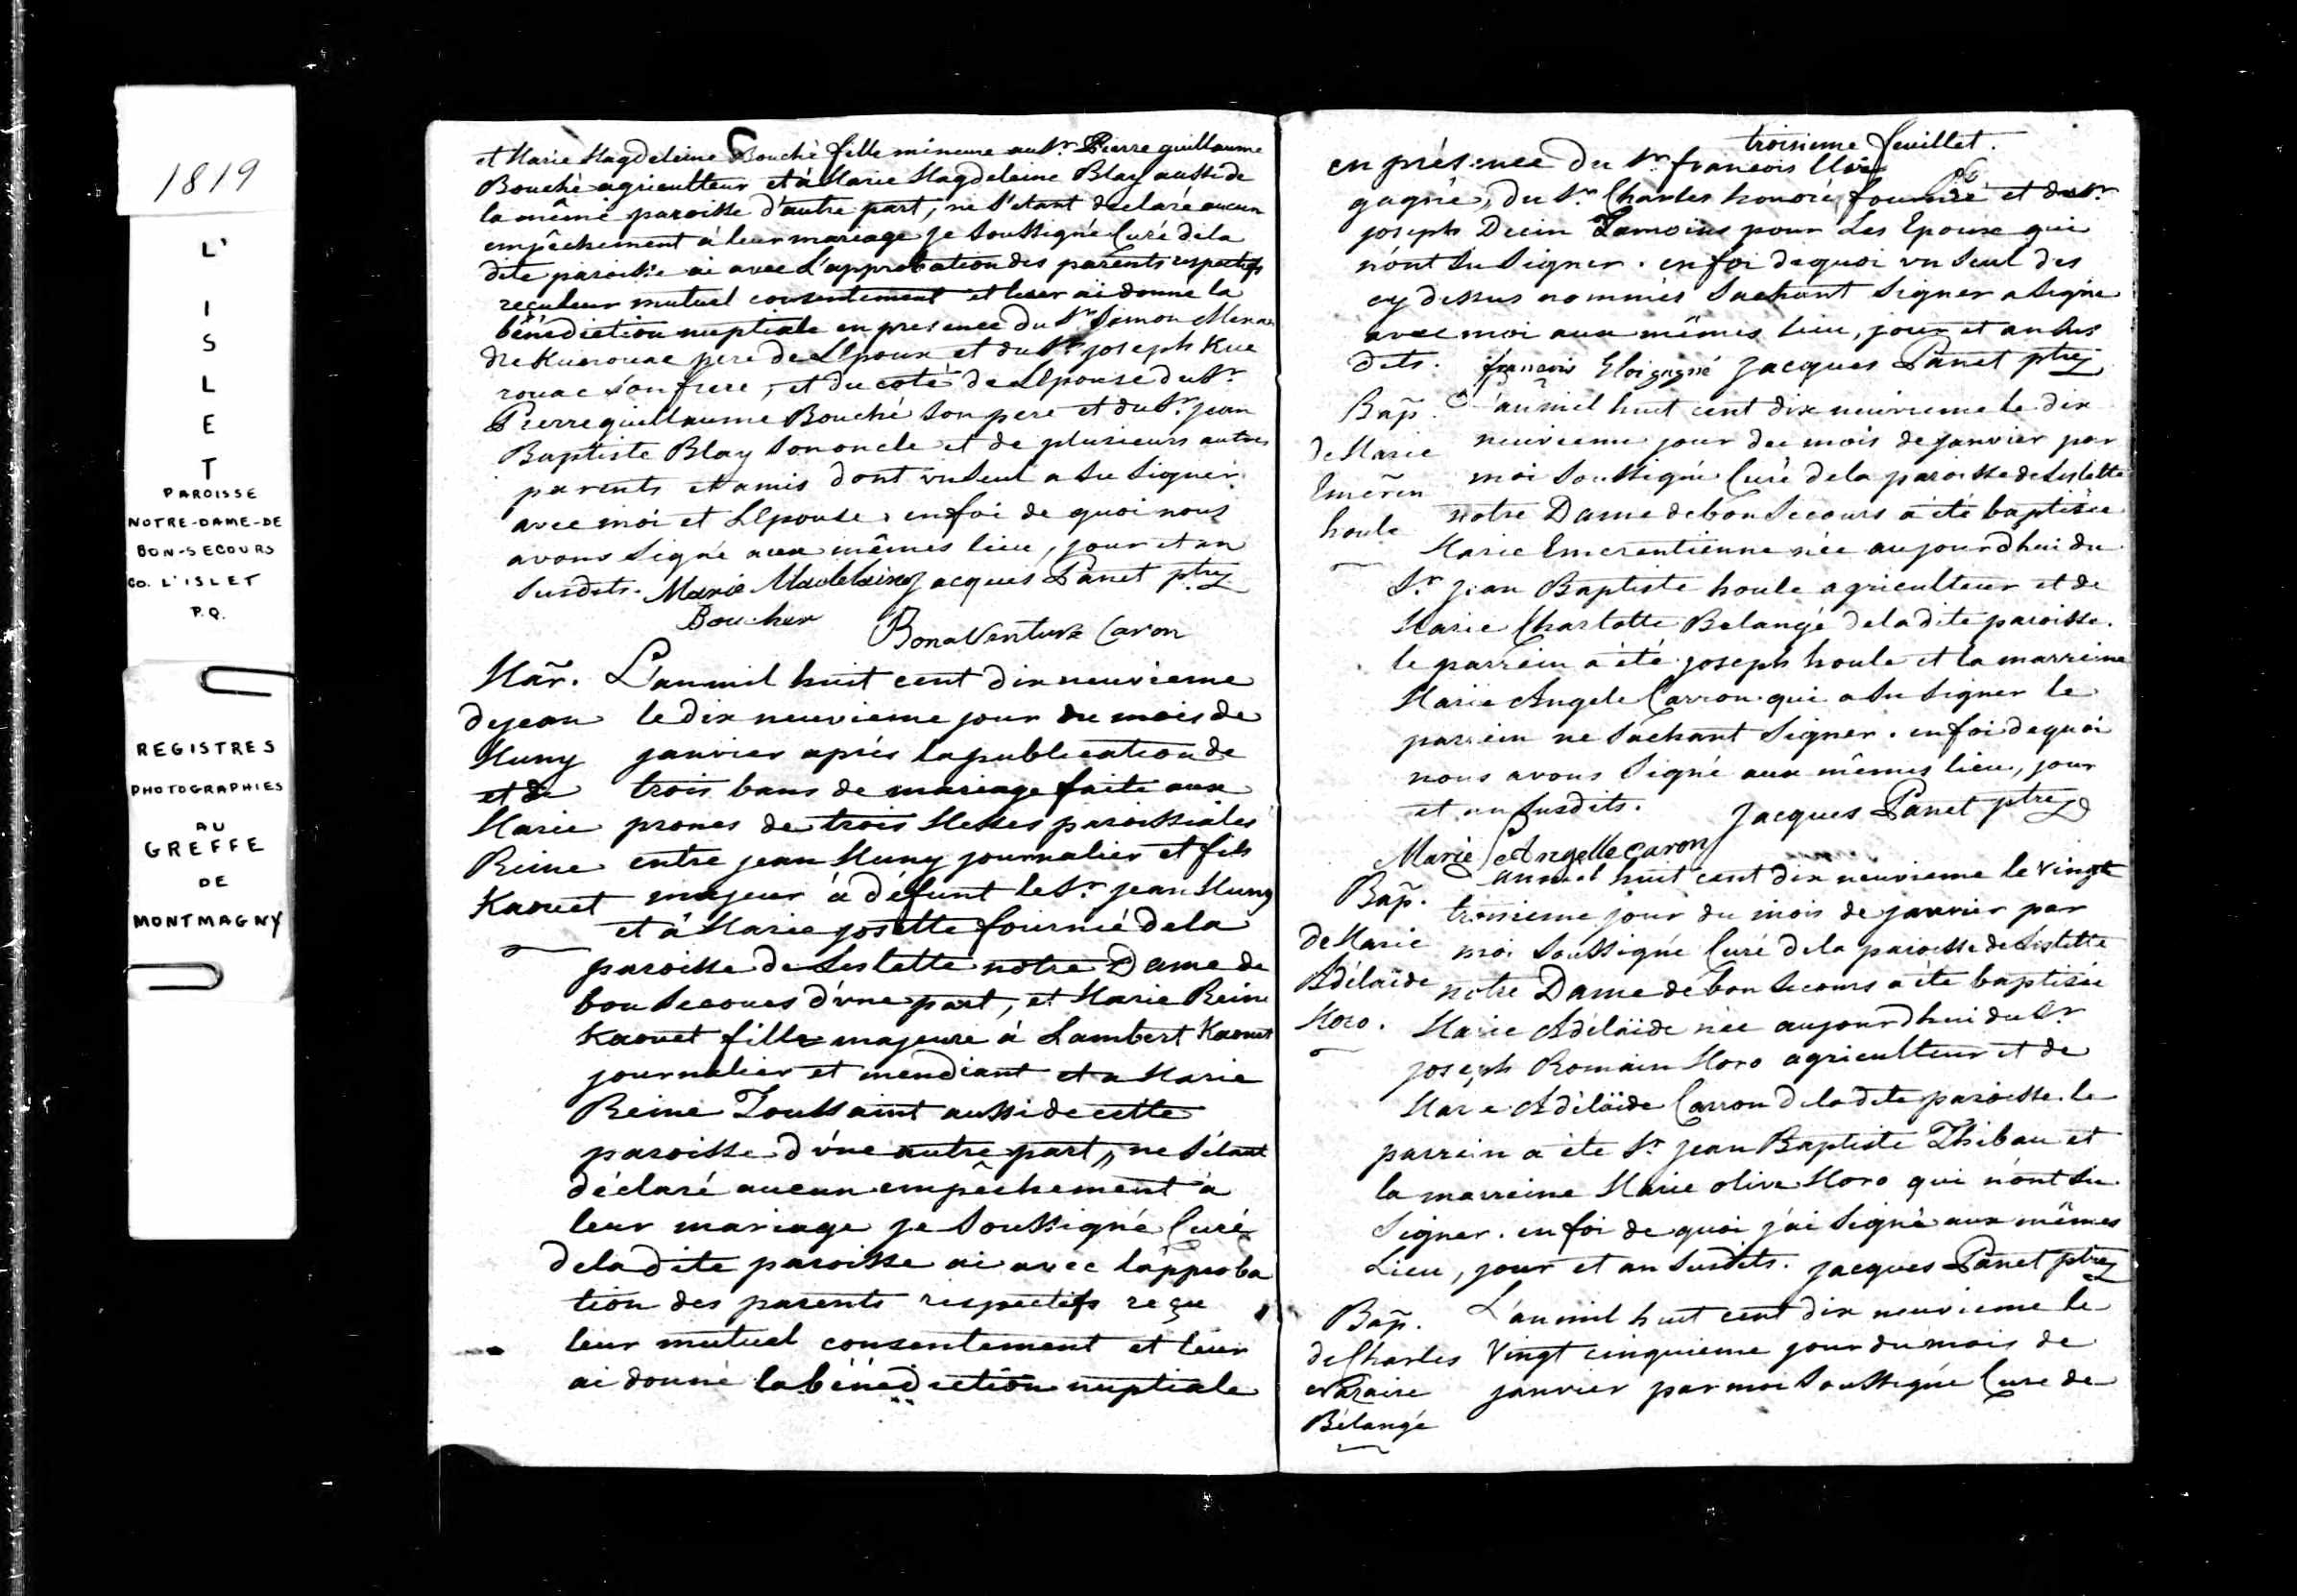 1819
L'
I
S
L
E
T
PAROISSE
NOTRE-DAME-DE
BON-SECOURS
CO. L'ISLET
P.Q.
REGISTRES
PHOTOGRAPHIES
AU
GREFFE
DE
MONTMAGNY
et Marie Magdeleine Bouché fille mineure au Sr. Pierre guillaume
Bouché agriculteur et à Marie Magdeleine Blay aussi de
la même paroisse d'autre part, ne s'etant declaré aucun
empêchement à leur mariage je soussigné Curé de la
dite paroisse ai avec l'approbation des parents respectifs
reçu leur mutuel consentement et leur ai donné la
bénediction nuptiale en presence du Sr Simon
dre Kuerouac pere de L'Epoux et du Sr joseph Kue
rouac son frere, et du coté de L'Epouse du Sr.
Pierre guillaume Bouché son pere et du Sr. jean
Baptiste Blay son oncle et de plusieurs autres
parents et amis dont un seul a su signer
avec moi et L'Epouse. en foi de quoi nous
avons signé aux mêmes lieu, jour et an
susdits. Marie Madelaine jacques Panet ptre
Boucher
Bonaventure Caron
Mar. L'an mil huit cent dix neuvieme
de jean le dix neuvieme jour du mois de
Muny janvier après la publication de
et de trois bans de mariage faite aux
Marie prones de trois Messes paroissiales
Reine entre jean Muny journalier et fils
Kaouet majeur à défunt le Sr. jean Muny
et à Marie josette fournié de la
paroisse de Leslette notre Dame de
bon Secours d'une part, et Marie Reine
Kaouet fille majeure à Lambert Kaouet
journalier et mendiant et a Marie
Reine Toussaint aussi de cette
paroisse d'une autre part, ne s'étant
déclaré aucun empêchement à
leur mariage je soussigné Curé
de la dite paroisse ai avec l'approba
tion des parents respectifs reçu
leur mutuel consentement et leur
ai donné la bénédiction nuptiale
troisieme feuillet.
en présence du Sr. francois
gagné, du Sr. Charles honoré fournié et du Sr.
joseph Temoins pour Les Epoux qui
n'ont su signer. en foi de quoi un seul des
cy dessus nommés sachant signer a signé
avec moi aux mêmes lieu, jour et an sus
dits. francois Eloi gagné jacques Panet ptre
Bap. L'an mil huit cent dix neuvieme le dix
de Marie neuvieme jour du mois de janvier par
Emeren moi soussigné Curé de la paroisse de Leslette
houle notre Dame de bon Secours a été baptisée
Marie Emerentienne née aujourdhui du
Sr. jean Baptiste houle agriculteur et de
Marie Charlotte Belangé de la dite paroisse.
le parrein a été joseph houle et la marreine
Marie Angele Carron qui a su signer le
parrein ne sachant signer. en foi de quoi
nous avons signé aux mêmes lieu, jour
et an susdits. jacques Panet ptre
Marie Angelle caron
Bap. L'an mil huit cent dix neuvieme le vingt
troisieme jour du mois de janvier par
de Marie moi soussigné Curé de la paroisse de Leslette
Adélaïde notre Dame de bon Secours a été baptisée
Moro. Marie Adélaïde née aujourdhui du Sr
joseph Romain Moro agriculteur et de
Marie Adélaïde Carron de la dite paroisse. le
parrein a été Sr jean Baptiste Thibau et
la marreine Marie olive Moro qui n'ont su
signer. en foi de quoi j'ai signé aux mêmes
Lieu, jour et an susdits. jacques Panet ptre
Bap. L'an mil huit cent dix neuvieme le
de Charles vingt cinquieme jour du mois de
janvier par moi soussigné Curé de
Bélangé